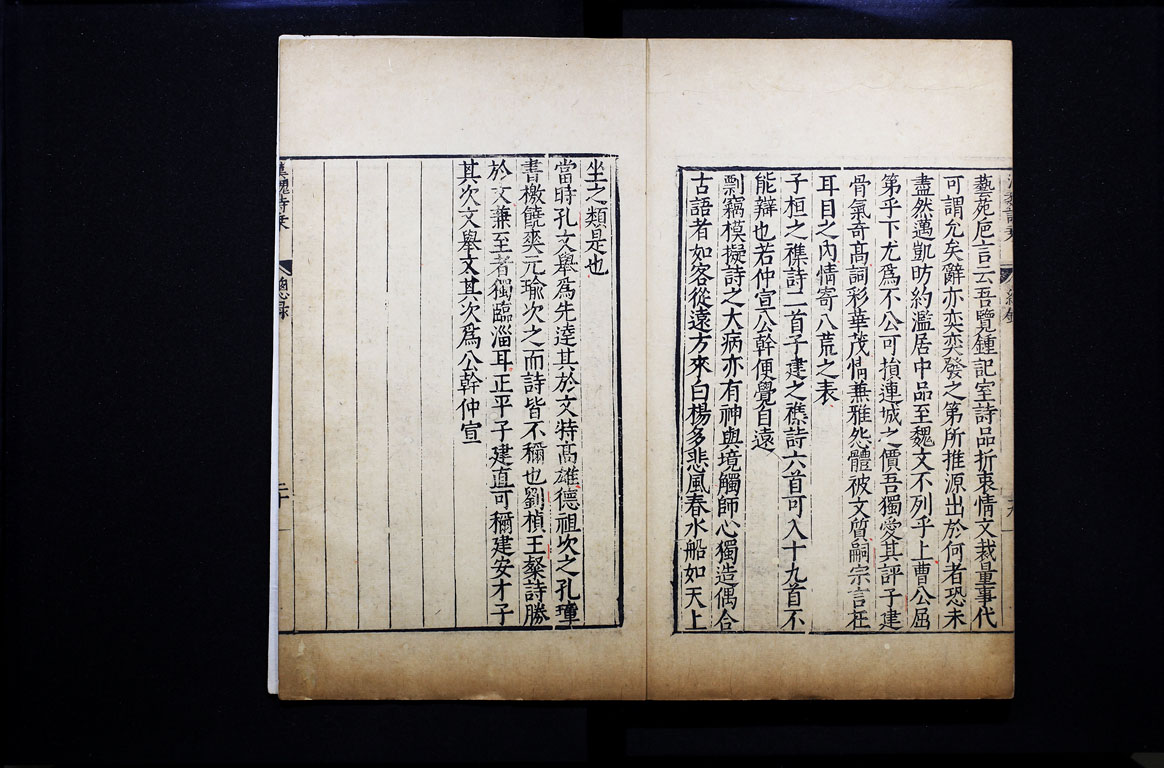 藝苑卮言云吾覽鍾記室詩品折衷情文裁量事代
可謂允矣辭亦奕奕發之第所推源出於何者恐未
盡然邁凱昉約濫居中品至魏文不列乎上曹公屈
第乎下尤爲不公可損連城之價吾獨愛其評子建
骨氣奇髙詞彩華茂情兼雅怨體被文質嗣宗言在
耳目之內情寄八荒之表
子桓之襍詩二首子建之襍詩六首可入十九首不
能辯也若仲宣公幹便覺自遠
剽竊模擬詩之大病亦有神與境觸師心獨造偶合
古語者如客從遠方來白楊多悲風春水船如天上
坐之類是也
當時孔文舉爲先達其於文特髙雄德祖次之孔璋
書檄饒爽元瑜次之而詩皆不稱也劉楨王粲詩勝
於文兼至者獨臨淄耳正平子建直可稱建安才子
其次文舉文其次爲公幹仲宣
漢魏詩乘
總錄
二十